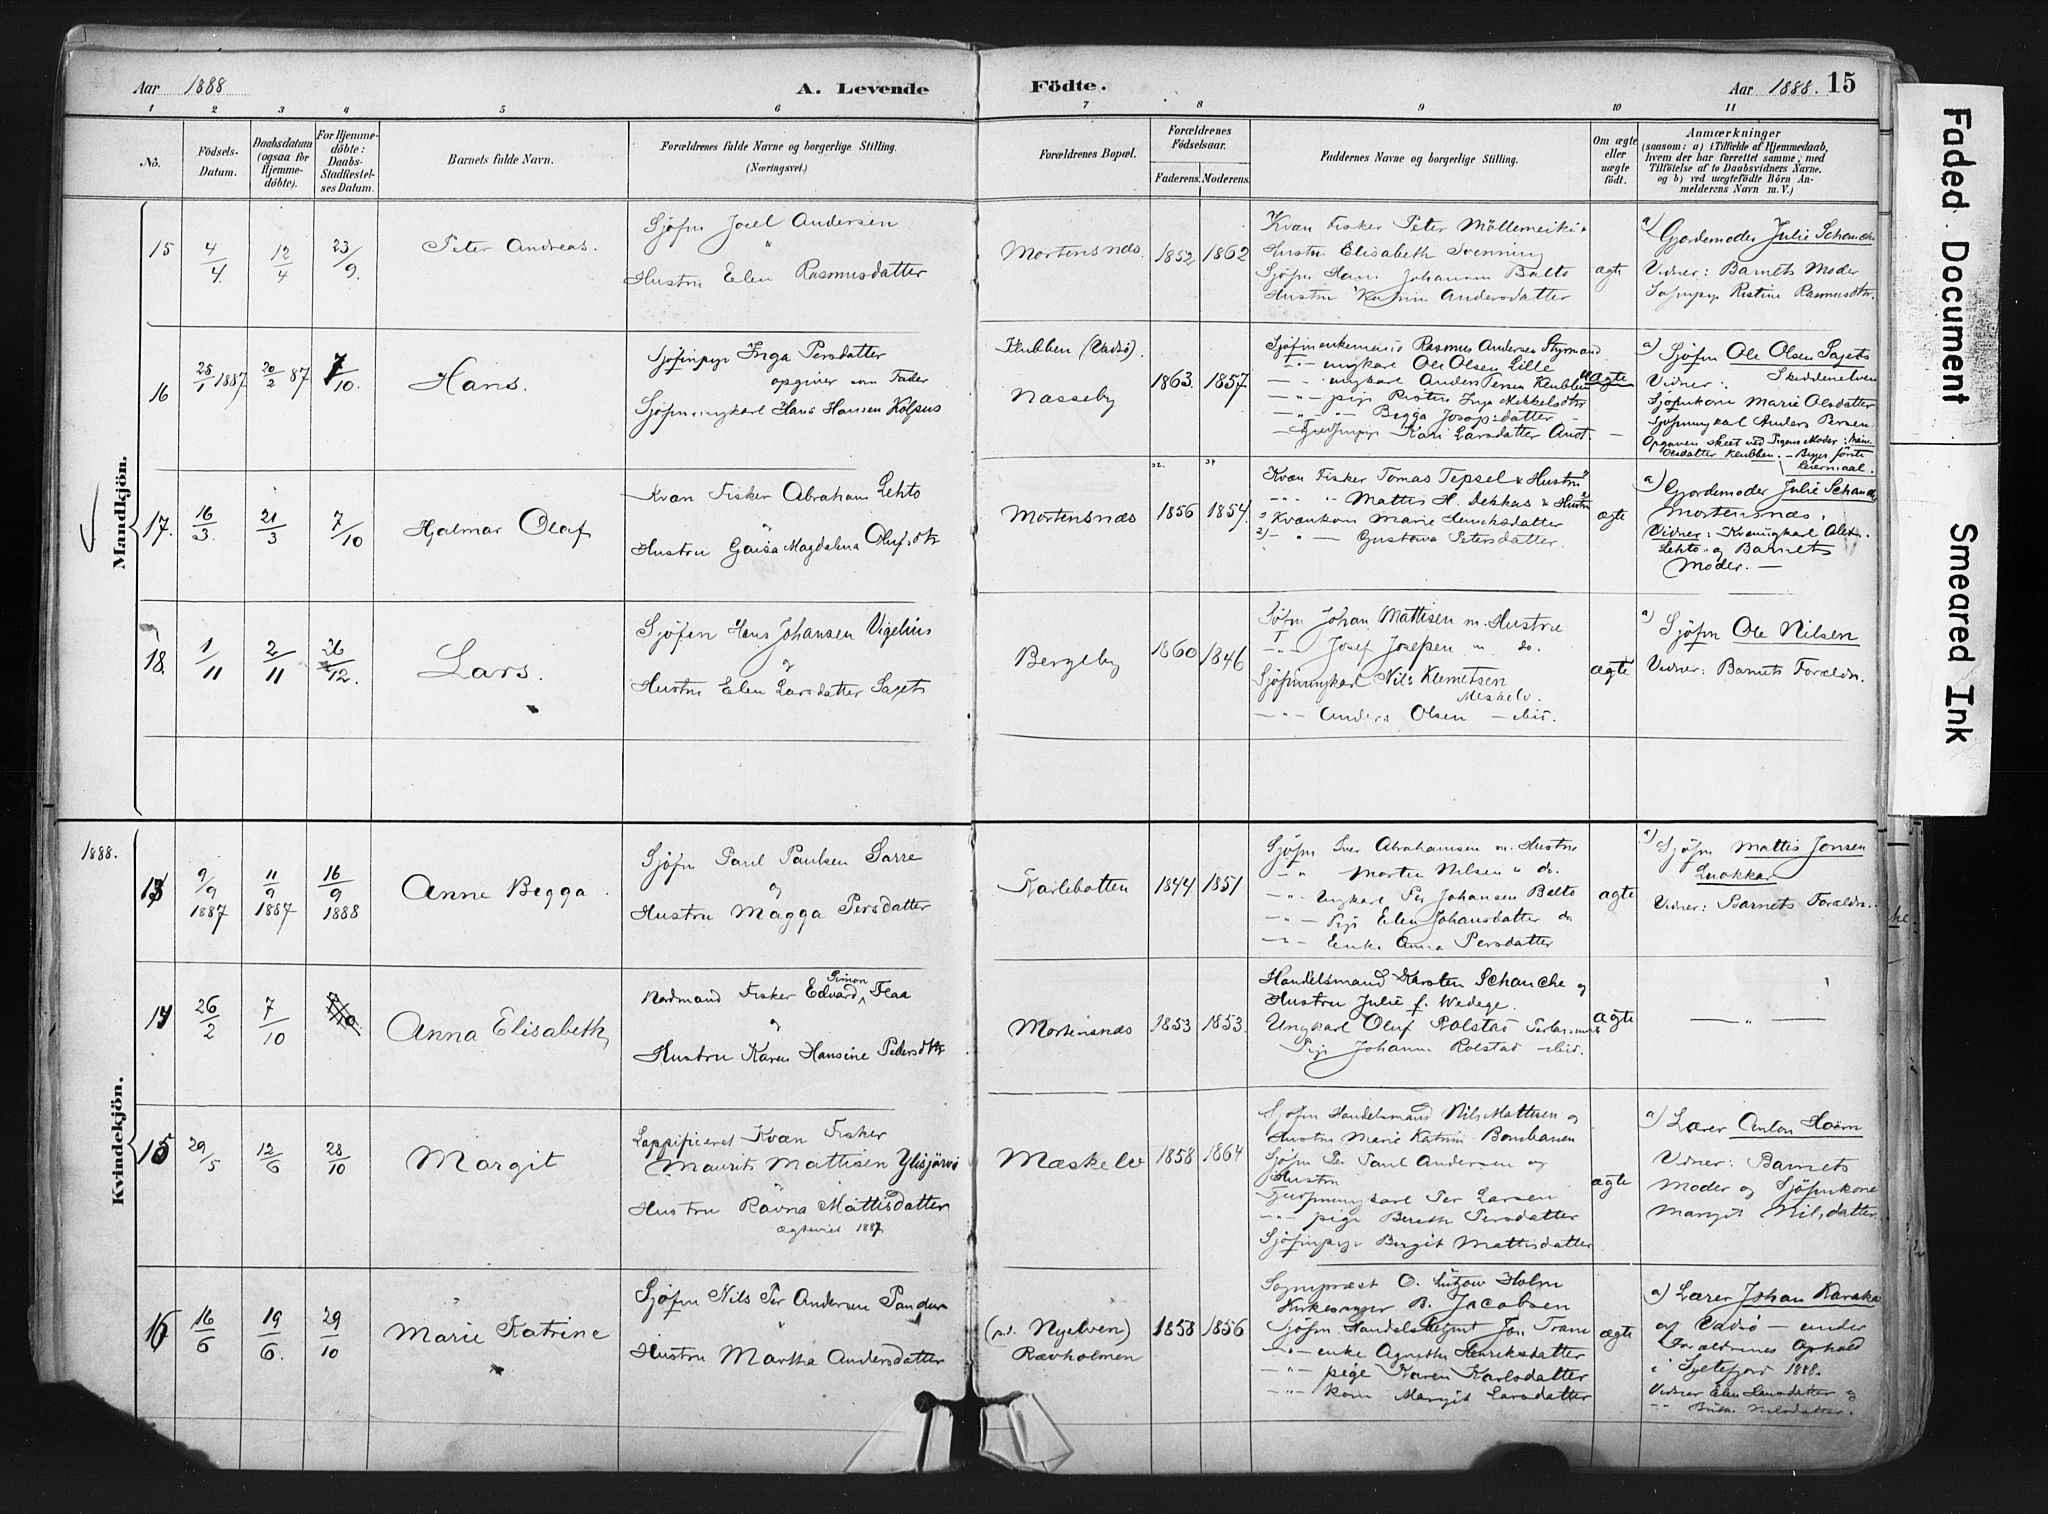 Aar 1888
A. Levende
Födte.
Aar 1888.
15
1 2 3 4 5 6 7 8 9 10 11
No.
Födsels-
Datum.
Daabsdatum
(ogsaa for
Hjemme-
döbte).
For Hjemme-
döbte:
Daabs-
Stadfæstel-
ses Datum.
Barnets fulde Navn.
Forældrenes fulde Navne og borgerlige Stilling.
(Næringsvei.)
Forældrenes Bopæl.
Forældrenes
Födselsaar.
Faderens. Moderens.
Faddernes Navne og borgerlige Stilling.
Om ægte
eller
uægte
födt.
Anmærkninger
(saasom: a) i Tilfælde af Hjemmedaab,
hvem der har forrettet samme, med
Tilföielse af to Daabsvidners Navne.
og b) ved uægtefödte Börn An-
melderens Navn m. V.)
Mandkjön.
15
4/4.
12/4
23/9.
Peter Andreas.
Sjöfin Joel Andersen
"
Hustru Elen Rasmusdatter
Mortensnæs.
1852
1862
Kvæn Fisker Peter Möllemeiki
Hustru Elisabeth Svenning
Sjöfin Hans Johannsen Balto
Hustru Katrin Andersdatter
ægte
a) Gjordemoder Julie Schanche
Vidner: Barnets Moder
Söfinpige Kristine Rasmusdtr.
16
25/1 1887
20/2 87
7/10.
Hans.
Sjöfinpige Inga Persdatter
opgiver som Fader
Sjöfinungkarl Hans Hansen Kolpus
Klubben (Vadsö).
Næsseby
1863.
1857
Sjöfinenkemand Rasmus Andersen Styrmand
— " — ungkarl Ole Olsen Lille
— " — ungkarl Anders Persen Klubben
— " — pige Kristin Inga Mikkelsdtr
— " — " Begga Josepsdatter
— Fjeldfinpige Kari Larsdatter Anot. —
uægte
a) Sjöfin Ole Olsen Sagets
Vidner: Skiddenelven
Sjöfinkone Marie Olsdatter
Sjöfinungkarl Anders Persen
Opgaven skeet ved Pigens Moder:
Olsdatter Klubben. — Begges förste
Leiermaal.
17.
16/3.
21/3
7/10
Hjalmar Olaf
Kvæn Fisker Abraham Lehto
&
Hustru Gaisa Magdalena Olufsdtr
Mortensnæs
1856
1854.
Kvæn Fisker Tomas Tepsel & Hustru
" " Mattis H. Dekkas & Hustru
1) Kvænkone Marie Henriksdatter
2) — " — Gustava Petersdatter.
ægte
a) Gjordemoder Julie Schanche
Mortensnæs.
Vidner: Kvænungkarl Alex.
Lehto og Barnets
Moder. —
18.
1/11
2/11
26/12.
Lars.
Sjöfin Hans Johansen Vigelius
&
Hustru Elen Larsdatter Sagets
Bergeby
1860
1846
Söfin Johan Mattisen m. Hustru
— " — Josef Josepsen m. do.
Sjöfinungkarl Nils Klemetsen
Meskelv.
— " — Anders Olsen — ibid.
ægte
a) Sjöfin Ole Nilsen
Vidner: Barnets Forældre.
1888.
Kvindekjön.
13
9/9 1887
11/9 1887
16/9 1888
Anne Begga.
Sjöfin Paul Paulsen Sarre
&
Hustru Magga Persdatter
Karlebotten
1844
1851
Sjöfin Iver Abrahamsen m. Hustru
" " Morten Nilsen " do.
— " — Ungkarl Per Johansen Balto
— " — Pige Elen Johansdatter do
— " — Enke Anne Persdatter
ægte
a) Sjöfin Mattis Jonsen
Luokkar
Vidner: Barnets Forældre.
14
26/2
7/10
Anna Elisabeth
Nordmand Fisker Edvard Simon Flaa
&
Hustru Karen Hansine Pedersdtr
Mortensnæs
1853
1853.
Handelsmand Karsten Schanche og
Hustru Julie f. Wedege.
Ungkarl Oluf Rolstad
Pige Johanne Rolstad — ibid.
ægte
— " —
15
29/5
12/6
28/10
Margit
Lappificeret Kvæn Fisker
Maurits Mattisen Ylisjärvi
&
Hustru Ravna Mattisdatter
Ægteviet 1887
Mæskelv
1858
1864
Sjöfin Handelsmand Nils Mattisen og
Hustru Marie Katrine Bomban
Sjöfin Per Paul Andersen og
Hustru
Fjeldfinungkarl Per Larsen
— " — pige Bereth Persdatter
Sjöfinpige Bergit Mattisdatter
ægte
a) Lærer Anton Hoëm
Vidner: Barnets
Moder og Sjöfinkone
Margit Nilsdatter.
16
16/6
19/6.
29/10
Marie Katrine
Sjöfin Nils Per Andersen Pandur
"
Hustru Martha Andersdatter
(v. Nyelven)
Rævholmen
1858
1856
Sognepræst O. Lützow Holm
Kirkesanger B. Jacobsen
Sjöfin Handelsbetjent Jon Trane
— " — enke Agnethe Henriksdatter
— " — pige Karen Karlsdatter
— " — kone Margit Larsdatter
ægte
a) Lærer Johan Karaka
af Vadsö — under
Forældrenes Ophold
i Syltefjord 1888.
Vidner Elen Hansdatter og
" " Nilsdatter.
Faded Document
Smeared Ink